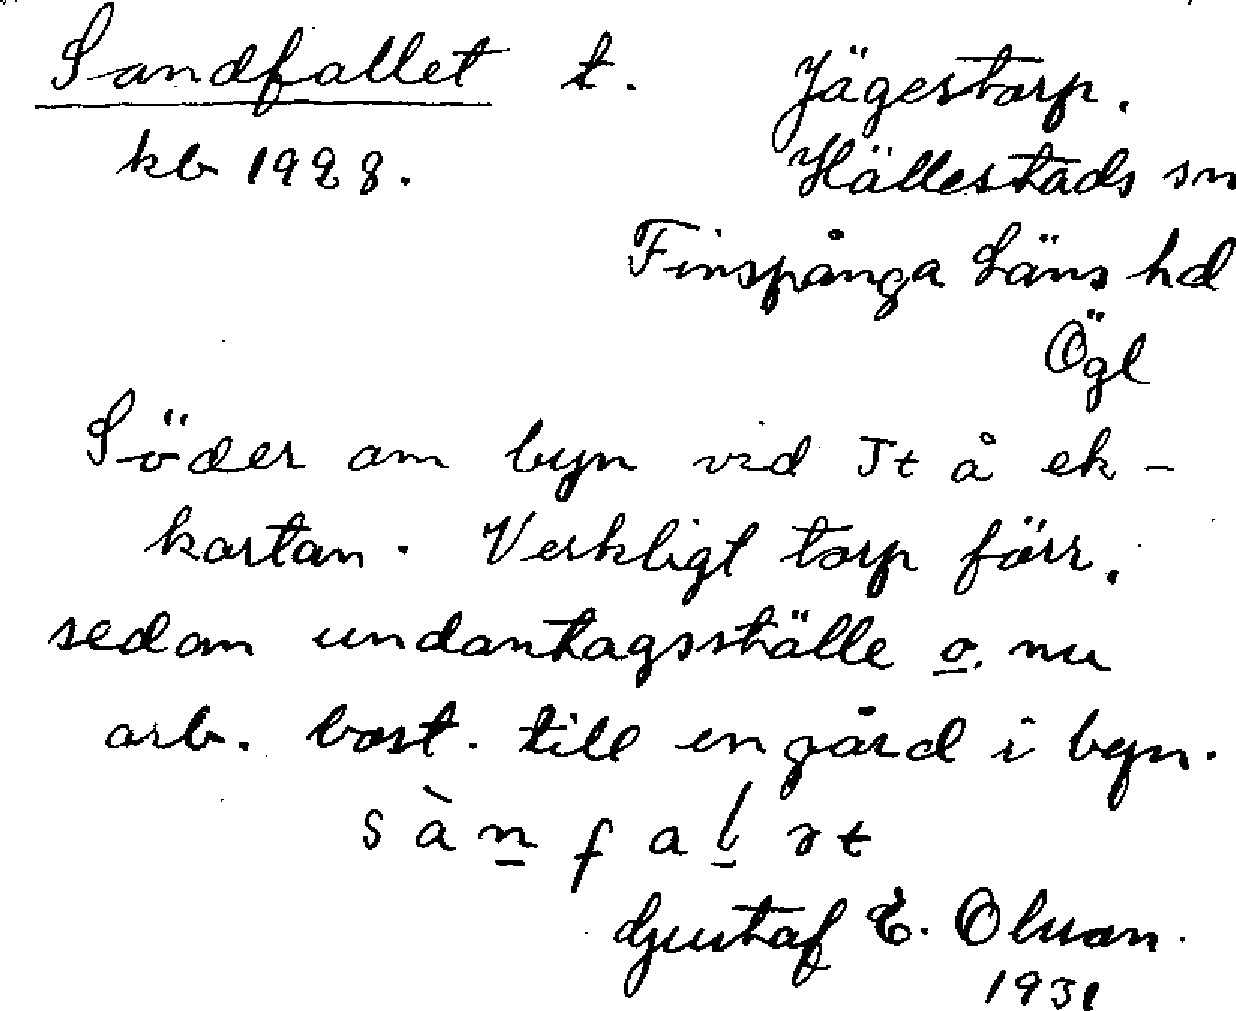 Sandfallet t. Jägestorp.
kb 1928. Hällestads sn
Finspånga Läns hd
Ögl
Söder om byn vid Jt å ek-
kartan. Verkligt torp förr,
sedan undantagsställe o. nu
arb. bost. till en gård i byn.
sànfalət
Gustaf E. Olsson.
1931